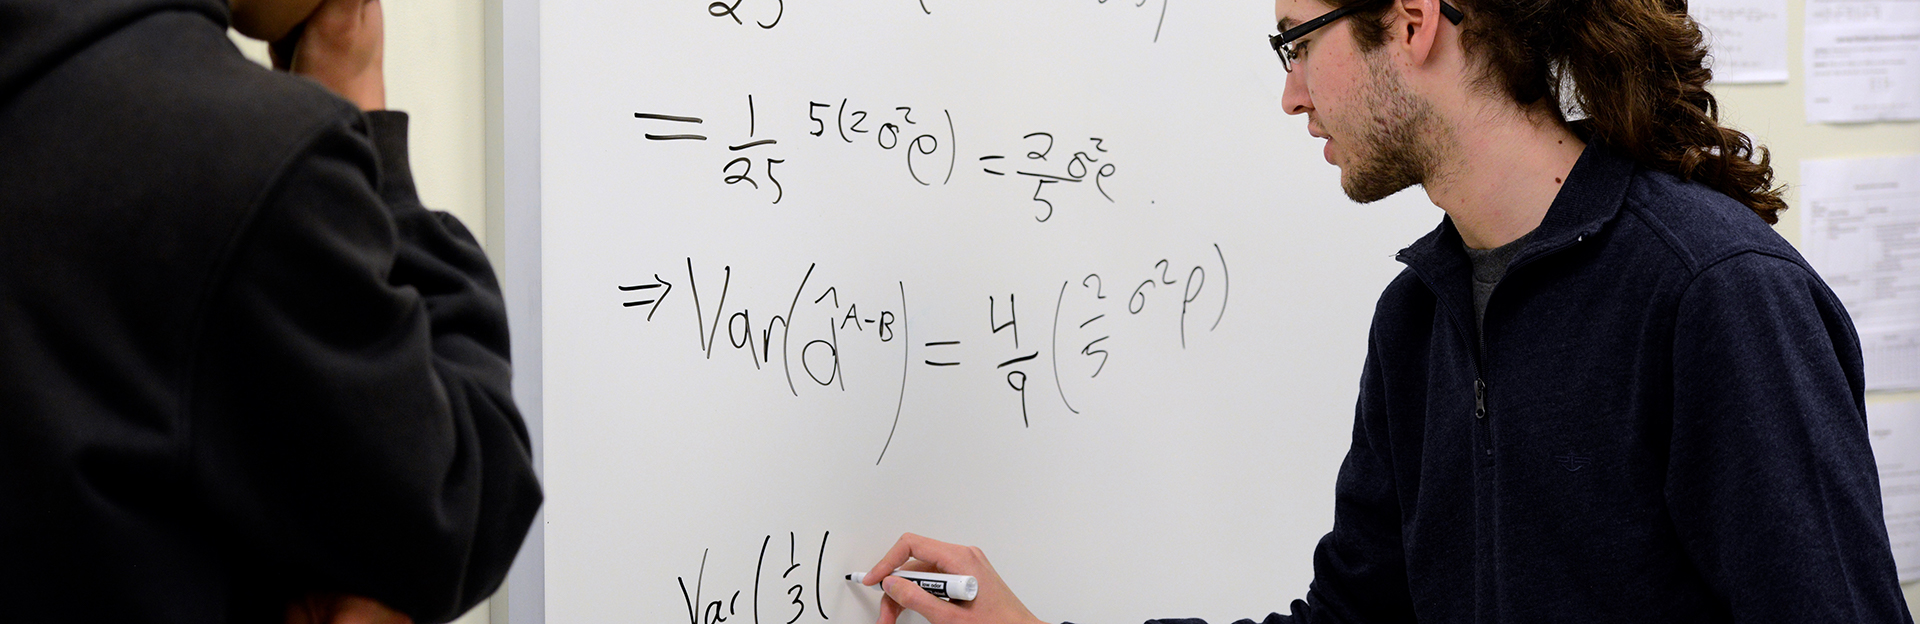 25 ( )
= 1/25 5(2σ²ρ) = 2/5 σ²ρ.
⇒ Var(d̂^{A-B}) = 4/9 (2/5 σ²ρ)
Var(1/3(